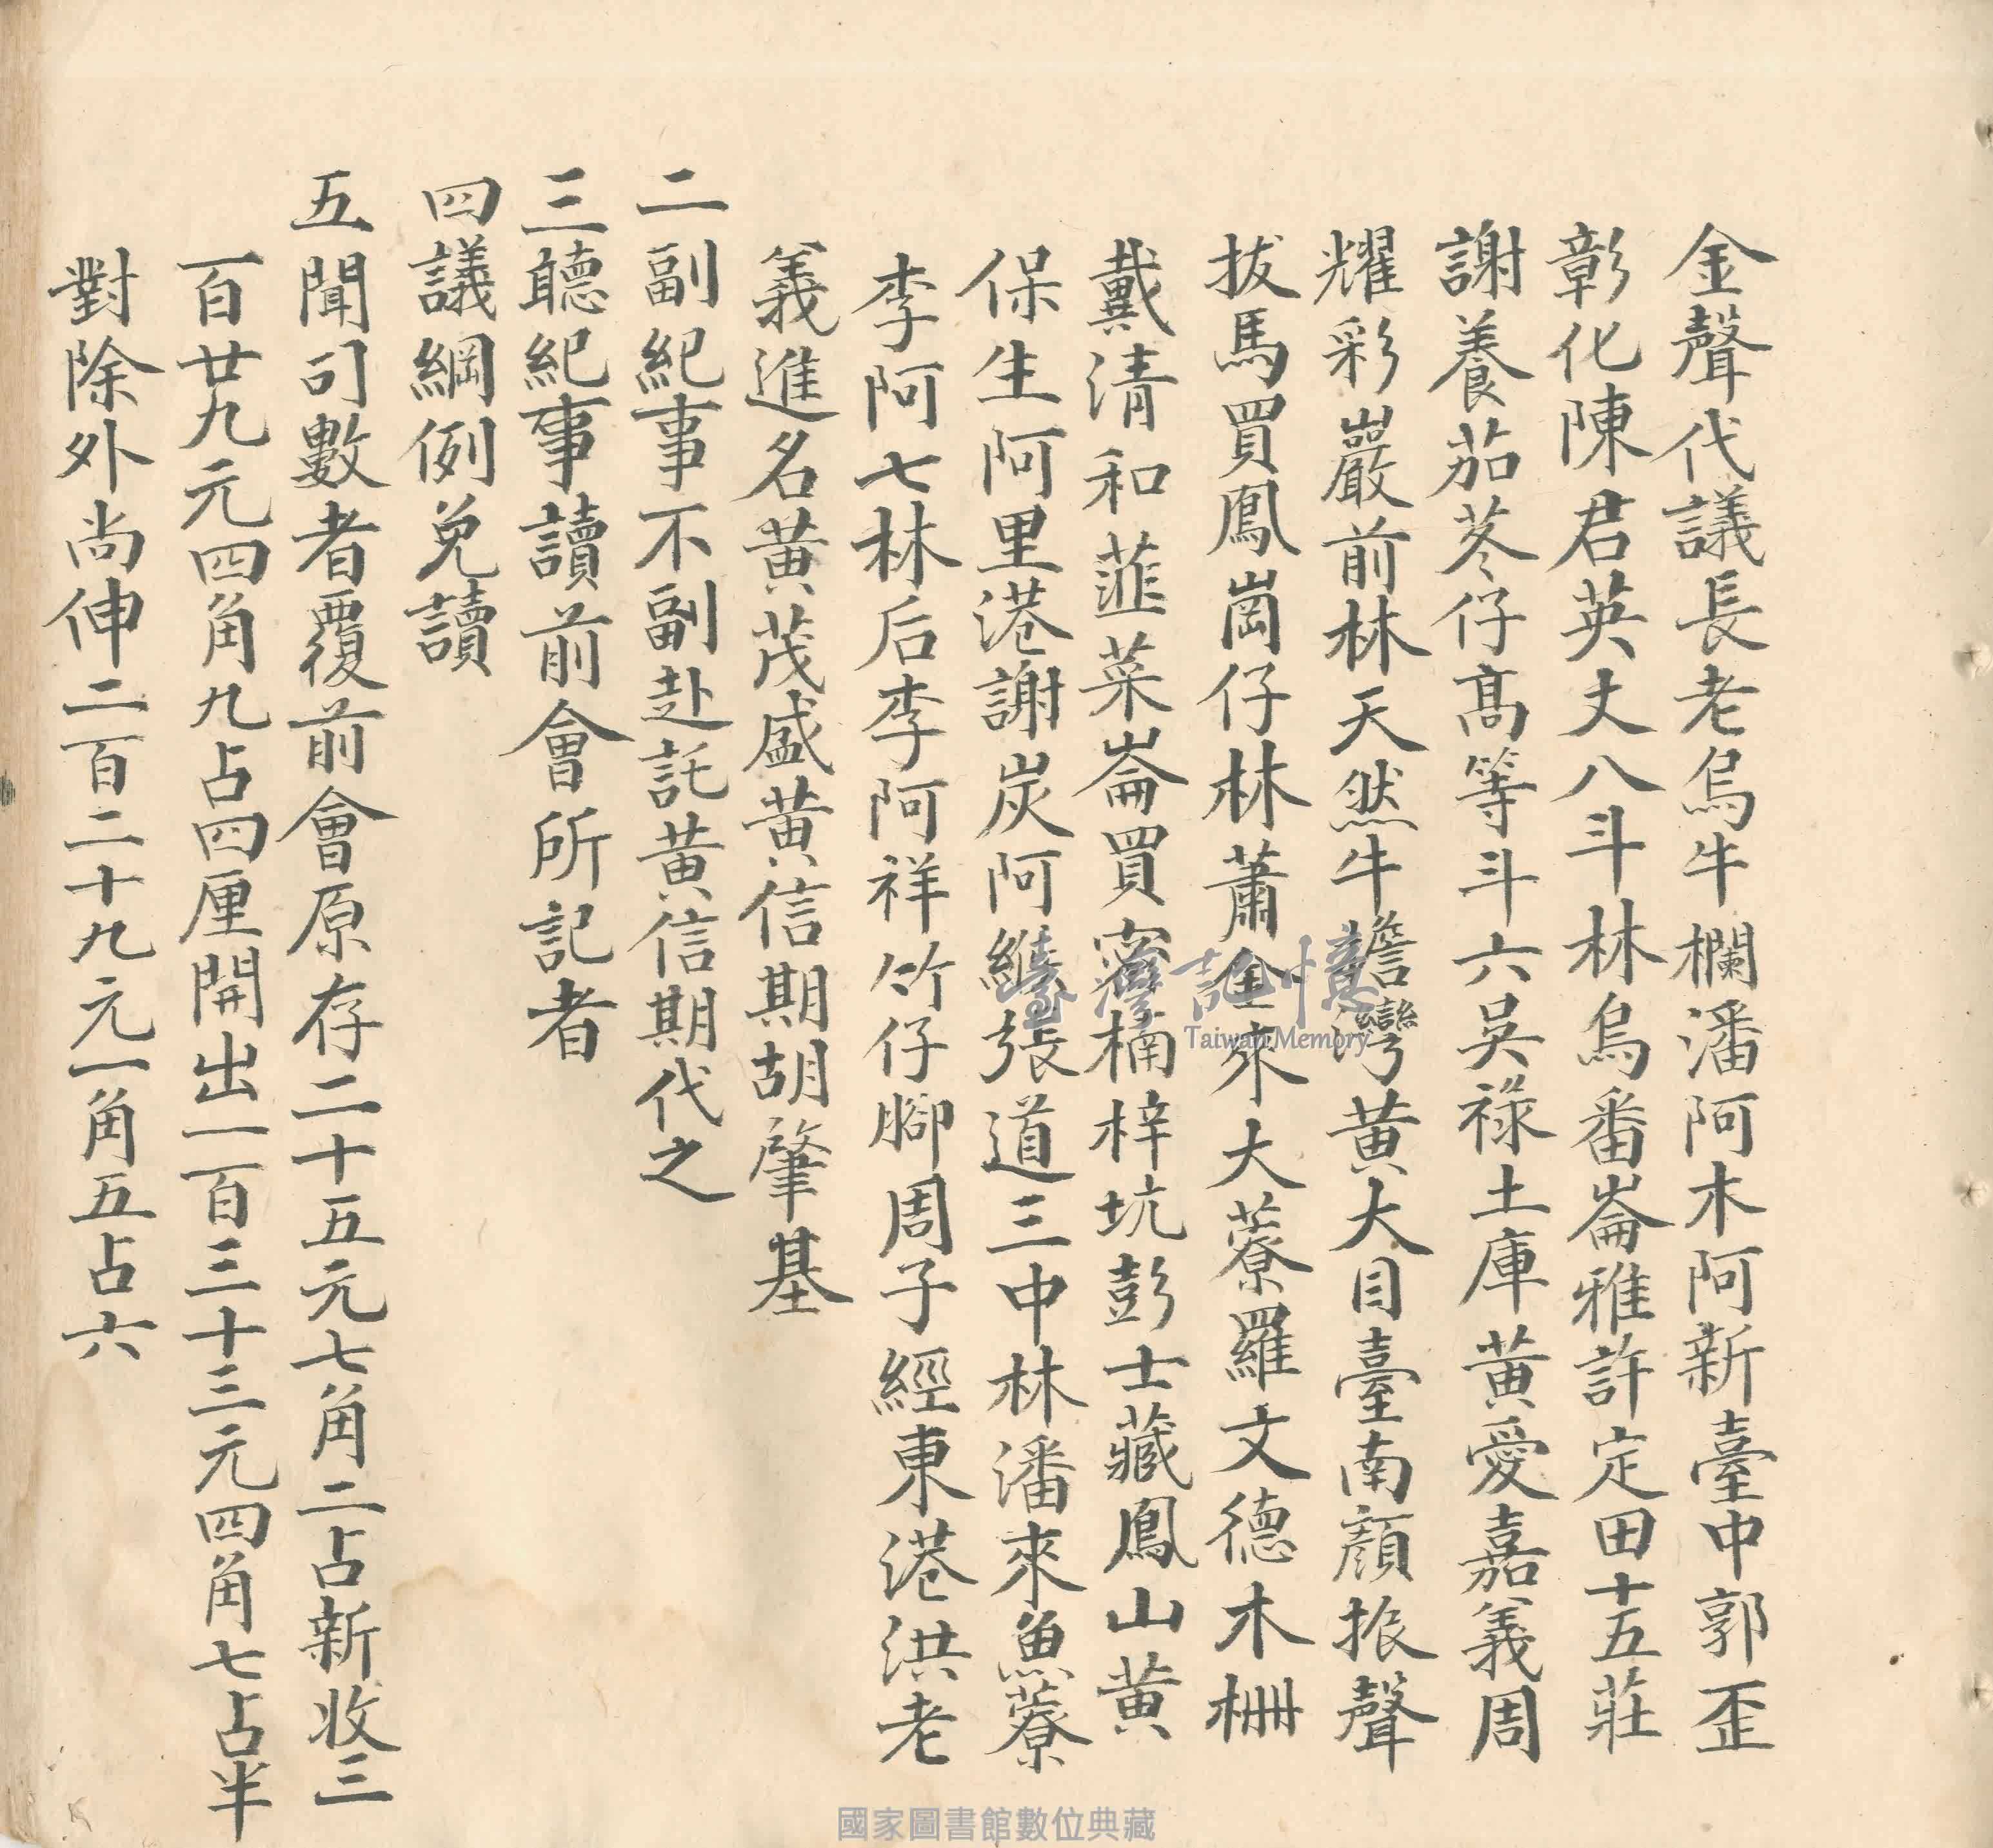 金聲代議長老烏牛欄潘阿木阿新臺中郭歪
彰化陳君英丈八斗林烏番崙雅許定田十五莊
謝養茄苳仔高等斗六吳祿土庫黃愛嘉義周
耀彩巖前林天然牛簷灣黃大目臺南顏振聲
拔馬買鳳崗仔林蕭金來大藔羅文德木柵
戴清和韮菜崙買蜜楠梓坑彭士藏鳳山黃
保生阿里港謝炭阿維張道三中林潘來魚藔
李阿七林后李阿祥竹仔腳周子經東港洪老
義進名黃茂盛黃信期胡肇基
二副紀事不副赴託黃信期代之
三聽紀事讀前會所記者
四議綱例免讀
五聞司數者覆前會原存二十五元七角二占新收三
百廿九元四角九占四厘開出一百三十三元四角七占半
對除外尚伸二百二十九元一角五占六
臺灣記憶
Taiwan Memory
國家圖書館數位典藏